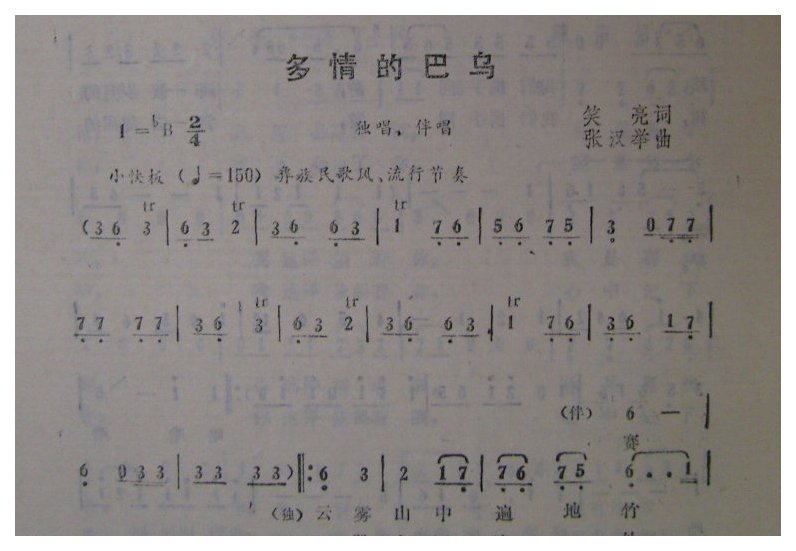 多情的巴乌
1=♭B 2/4 独唱、伴唱 笑亮词
张汉举曲
小快板（♩=150）彝族民歌风、流行节奏
tr tr tr
(3 6 3 | 6 3 2 | 3 6 6 3 | 1 7 6 | 5 6 7 5 | 3 0 7 7 |
tr tr tr
7 7 7 7 | 3 6 3 | 6 3 2 | 3 6 6 3 | 1 7 6 | 3 6 1 7 |
（伴） 6 — |
赛
6 0 3 3 | 3 3 3 3) ‖: 6 3 | 2 1 7 | 7 6 7 5 | 6 · · 1 |
（独）云雾山中遍地竹